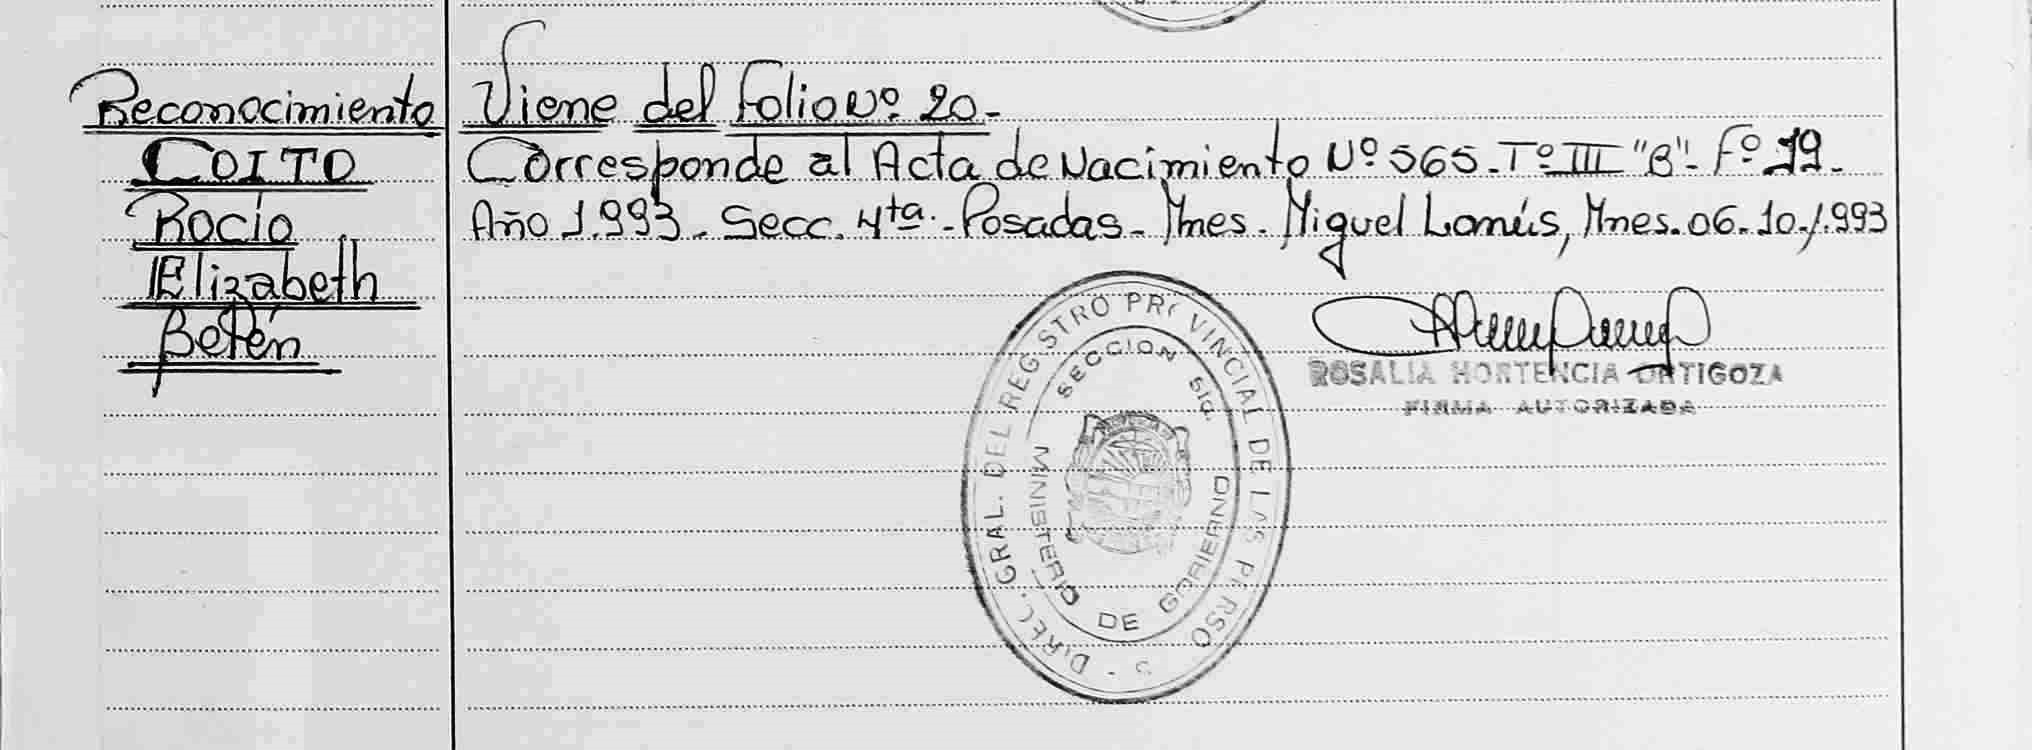 Reconocimiento
COITO
Rocío
Elizabeth
Belén
Viene del Folio Nº 20-
Corresponde al Acta de Nacimiento Nº 565. Tº III "B"- Fº 19.
Año 1.993. Secc. 4ta.- Posadas- Mnes. Miguel Lanús, Mnes. 06.10.1.993
ROSALIA HORTENCIA ORTIGOZA
FIRMA AUTORIZADA
DIREC. GRAL. DEL REGISTRO PROVINCIAL DE LAS PERSO S -
SECCION 5ta.
MINISTERIO DE GOBIERNO